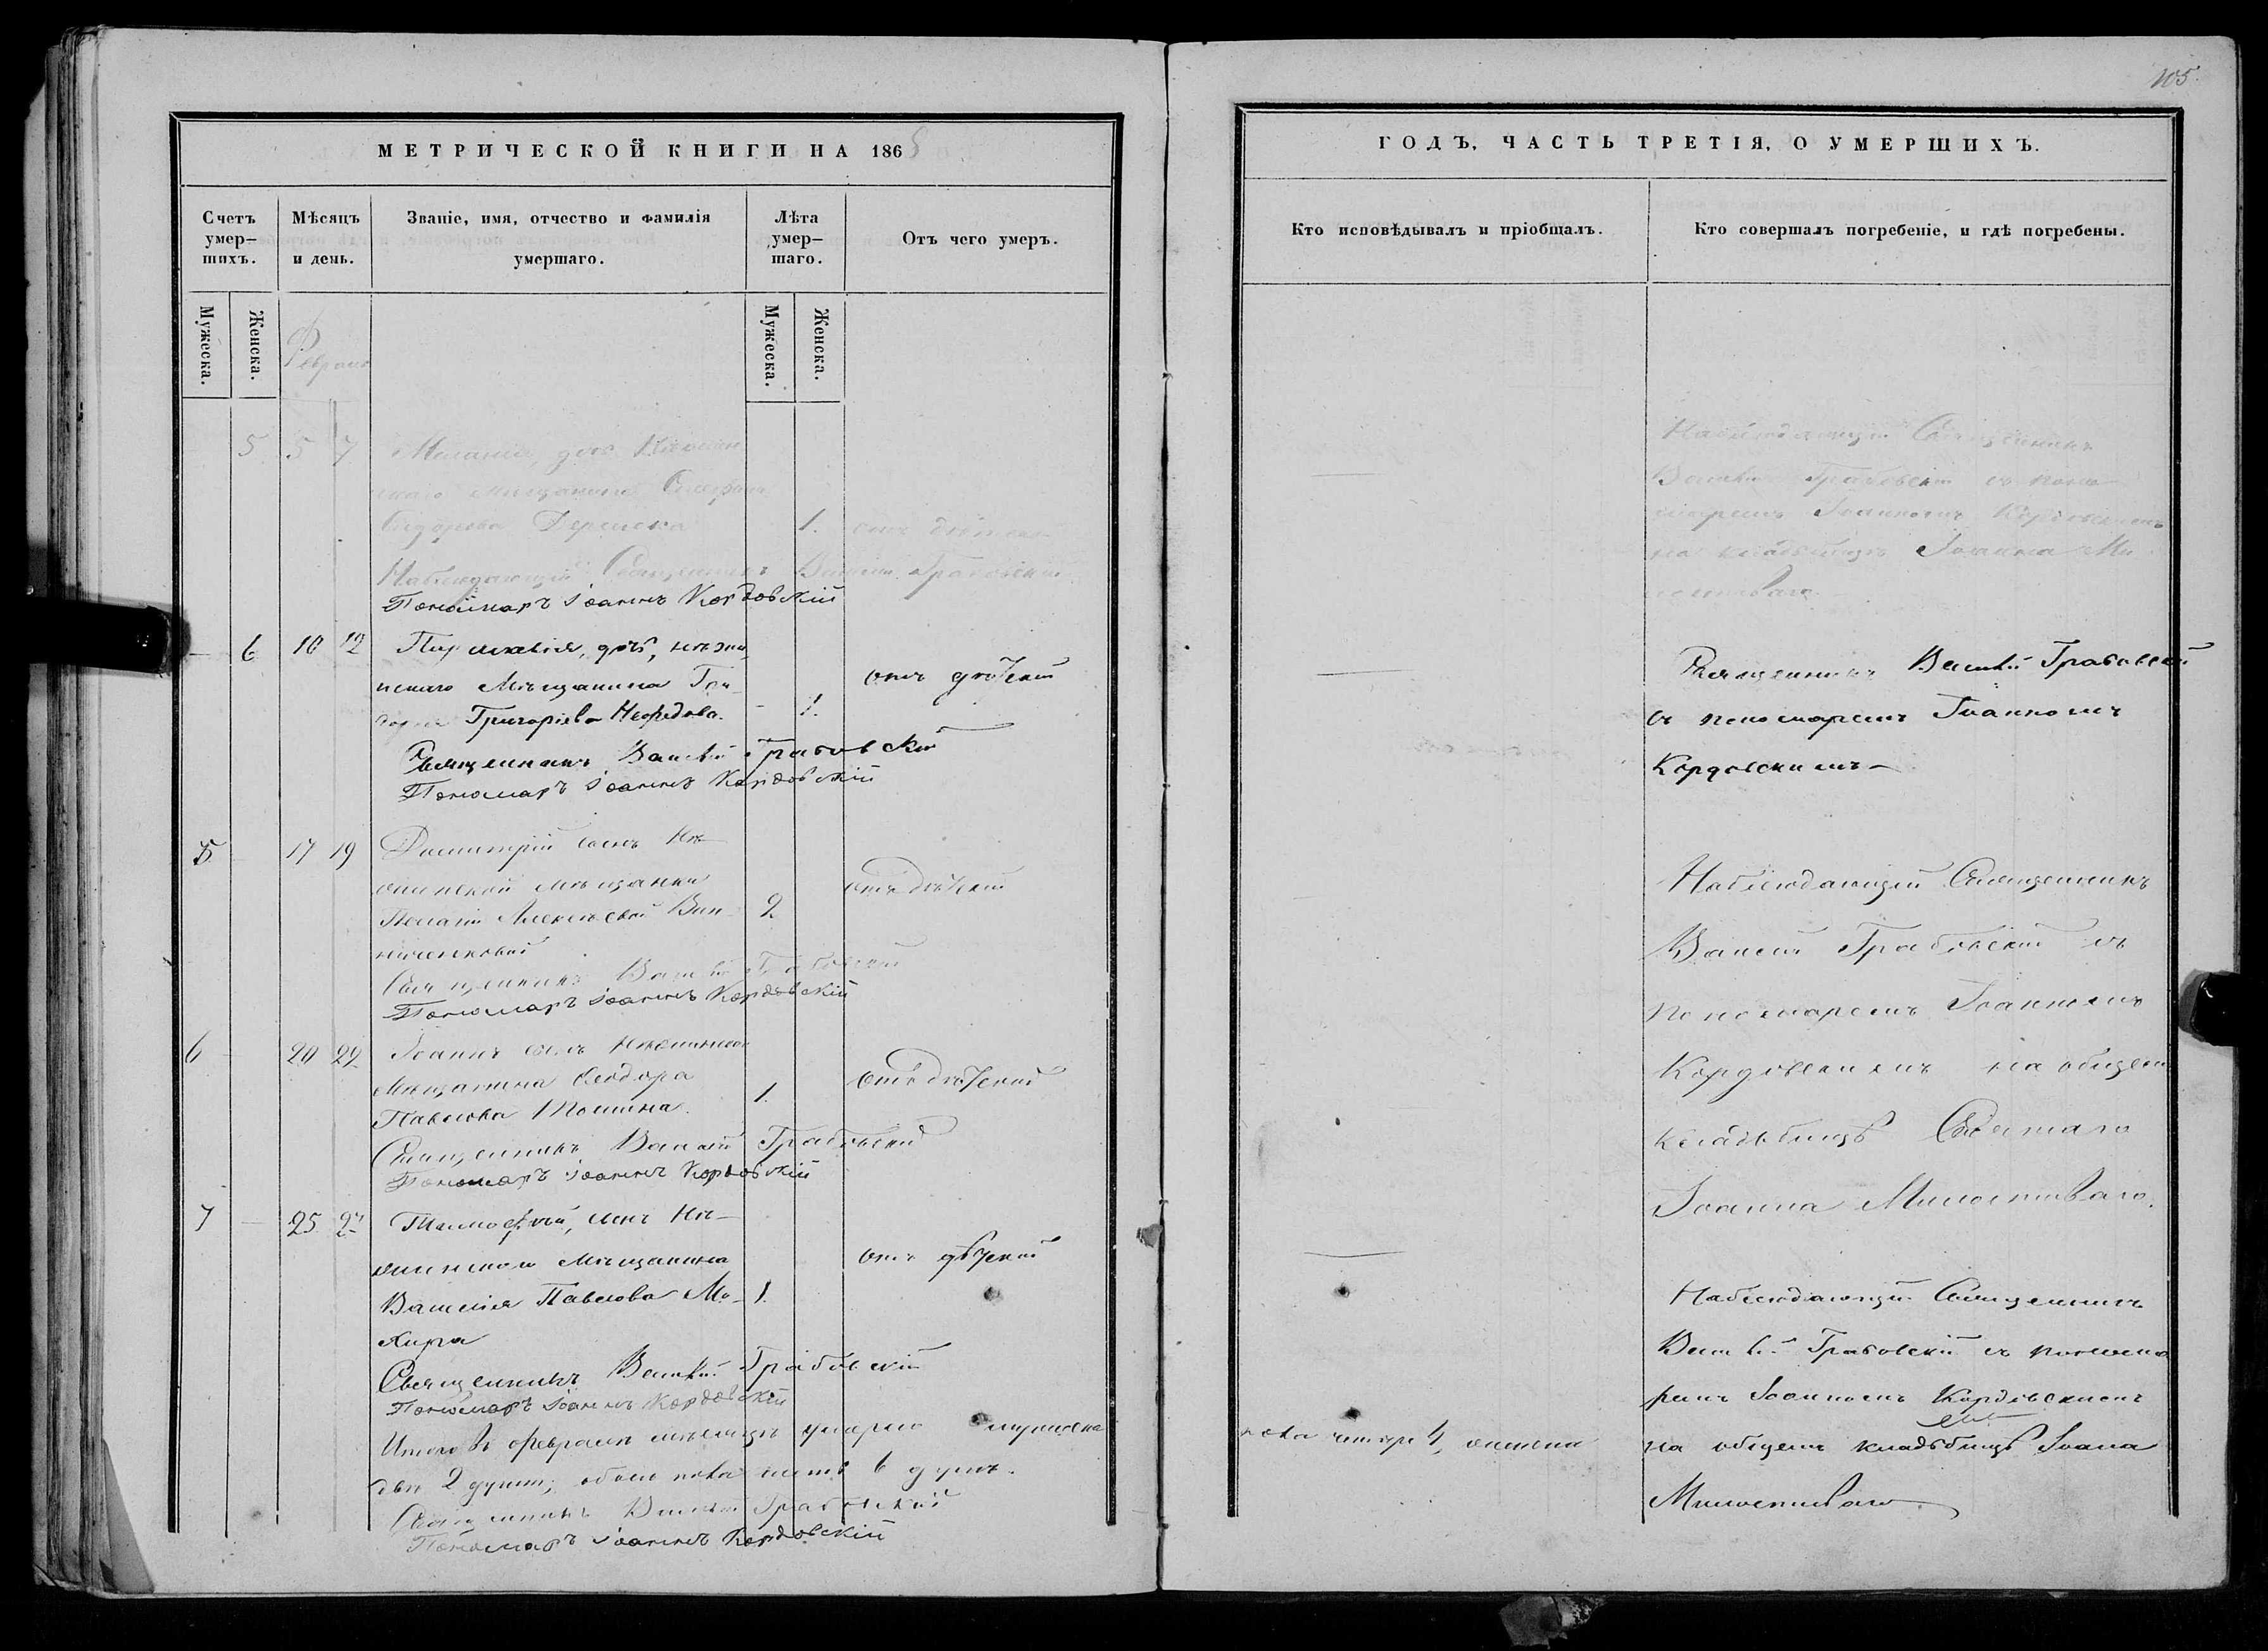 105.
МЕТРИЧЕСКОЙ КНИГИ НА 1865
ГОДЪ, ЧАСТЬ ТРЕТІЯ, О УМЕРШИХЪ.
Счетъ умер-
шихъ.
Мѣсяцъ
и день.
Званіе, имя, отчество и фамилія
умершаго.
Лѣта
умер-
шаго.
Отъ чего умеръ.
Кто исповѣдывалъ и пріобщалъ.
Кто совершалъ погребеніе, и гдѣ погребены.
Мужеска.
Женска.
Мужеска.
Женска.
Февраль
5 5 7
мѣщанина
1.
Наблюдающій Священникъ Василій Грабовскій
Пономарь Іоаннъ Кордовскій
Наблюдающій Священникъ
Василій Грабовскій съ поно-
маремъ Іоанномъ Кордовскимъ
на кладбищѣ Іоанна Ми-
лостиваго
6 10 12 Параскевія, дочь, нѣжин-
скаго Мѣщанина
Григоріева Нефедова. 1.
отъ дѣтской
Священникъ Василій Грабовскій
Пономарь Іоаннъ Кордовскій
Священникъ Василій Грабовскій
съ пономаремъ Іоанномъ
Кордовскимъ
5 17 19 Димитрій сынъ Нѣ-
жинской мѣщанки
Пелагіи Алексѣевой Вин-
ниченковой 2
отъ дѣтской
Священникъ Василій Грабовскій
Пономарь Іоаннъ Кордовскій
Наблюдающій Священникъ
Василій Грабовскій съ
пономаремъ Іоанномъ
Кордовскимъ на общемъ
кладбищѣ Святаго
Іоанна Милостиваго.
6 20 22 Іоаннъ сынъ нѣжинскаго
Мѣщанина Феодора
Павлова 1.
отъ дѣтской
Священникъ Василій Грабовскій
Пономарь Іоаннъ Кордовскій
7 25 27 Тимофей, сынъ Нѣ-
жинскаго мѣщанина
Василія Павлова Мо- 1.
кира
отъ дѣтской
Священникъ Василій Грабовскій
Пономарь Іоаннъ Кордовскій
Наблюдающій Священникъ
Василій Грабовскій съ понома-
ремъ Іоанномъ Кордовскимъ
на общемъ кладбищѣ Іоана
Милостиваго.
Итого въ февралѣ мѣсяцѣ умерло мужеска
пола четыре 4, женска
двѣ 2 души; обоего пола шесть 6 душъ.
Священникъ Василій Грабовскій
Пономарь Іоаннъ Кордовскій